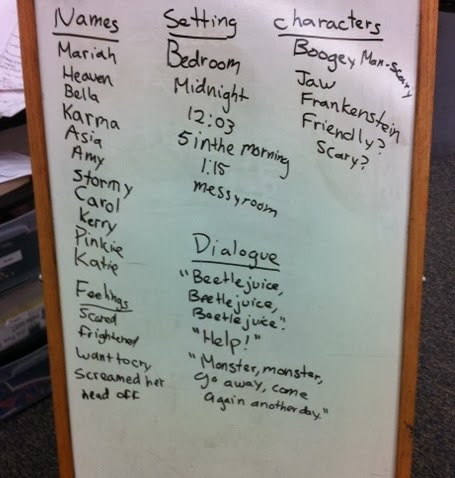 Names
Mariah
Heaven
Bella
Karma
Asia
Amy
Stormy
Carol
Kerry
Pinkie
Katie
Feelings
Scared
frightened
want to cry
Screamed her
head off
Setting
Bedroom
Midnight
12:03
5 in the morning
1:15
messy room
Dialogue
"Beetlejuice,
Beetlejuice,
Beetlejuice".
"Help!"
"Monster, monster,
go away, come
again another day."
Characters
Boogey Man-Scary
Jaw
Frankenstein
Friendly?
Scary?